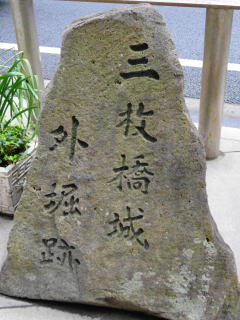 三枚橋城
外堀跡